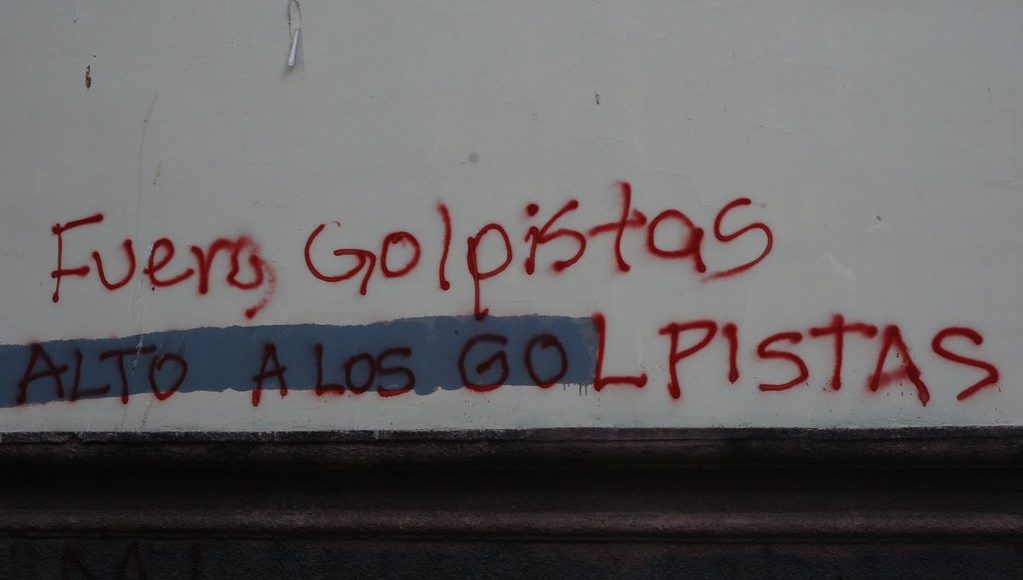 Fuera Golpistas
ALTO A LOS GOLPISTAS